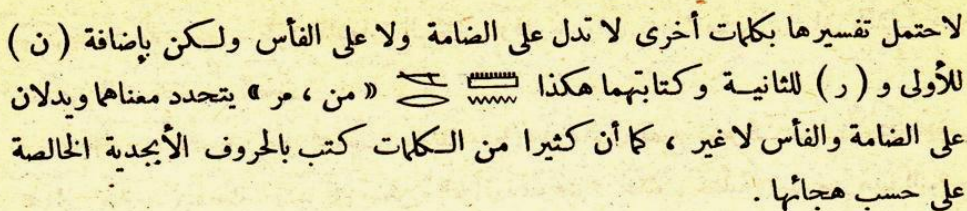 لاحتمل تفسيرها بكلمات أخرى لا تدل على الضامة ولا على الفأس ولكن بإضافة ( ن )
للأولى و ( ر ) للثانية وكتابتهما هكذا 𓏠𓈖 𓌸𓂋 « من ، مر » يتحدد معناهما ويدلان
على الضامة والفأس لا غير ، كما أن كثيرا من الكلمات كتب بالحروف الأبجدية الخالصة
على حسب هجائها .